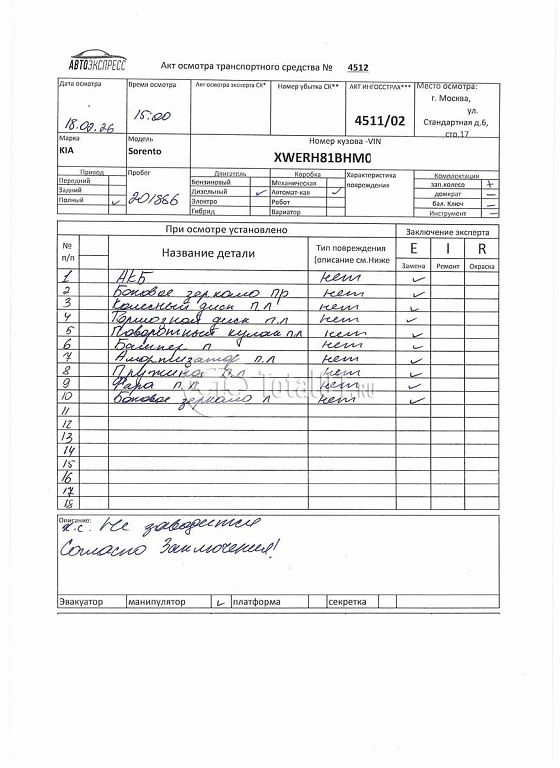 АВТОЭКСПРЕСС
Акт осмотра транспортного средства № 4512
Дата осмотра Время осмотра Акт осмотра эксперта СК* Номер убытка СК** АКТ ИНГОССТРАХ*** Место осмотра:
г. Москва,
ул.
Стандартная д.6,
стр.17
15:00
4511/02
Марка Модель Номер кузова -VIN
KIA Sorento XWERH81BHM0
Привод Пробег Двигатель Коробка Характеристика повреждения Комплектация
Передний Бензиновый Механическая зап.колесо +
Задний Дизельный ✓ Автомат-кая ✓ домкрат —
Полный ✓ 201866 Электро Робот бал. Ключ —
Гибрид Вариатор Инструмент —
При осмотре установлено Заключение эксперта
№ п/п Название детали Тип повреждения (описание см.Ниже E I R
Замена Ремонт Окраска
1 АКБ нет ✓
2 Боковое зеркало пр нет ✓
3 Колесный диск п.л нет ✓
4 Тормозной диск п.л нет ✓
5 Поворотный кулак пл нет ✓
6 Бампер п нет ✓
7 Амортизатор п.л нет ✓
8 Пружина п.л нет ✓
9 Фара п.л нет ✓
10 Боковое зеркало л нет ✓
11
12
13
14
15
16
17
18
Описание:
Не заводится
Согласно Заключения!
Эвакуатор манипулятор ✓ платформа секретка